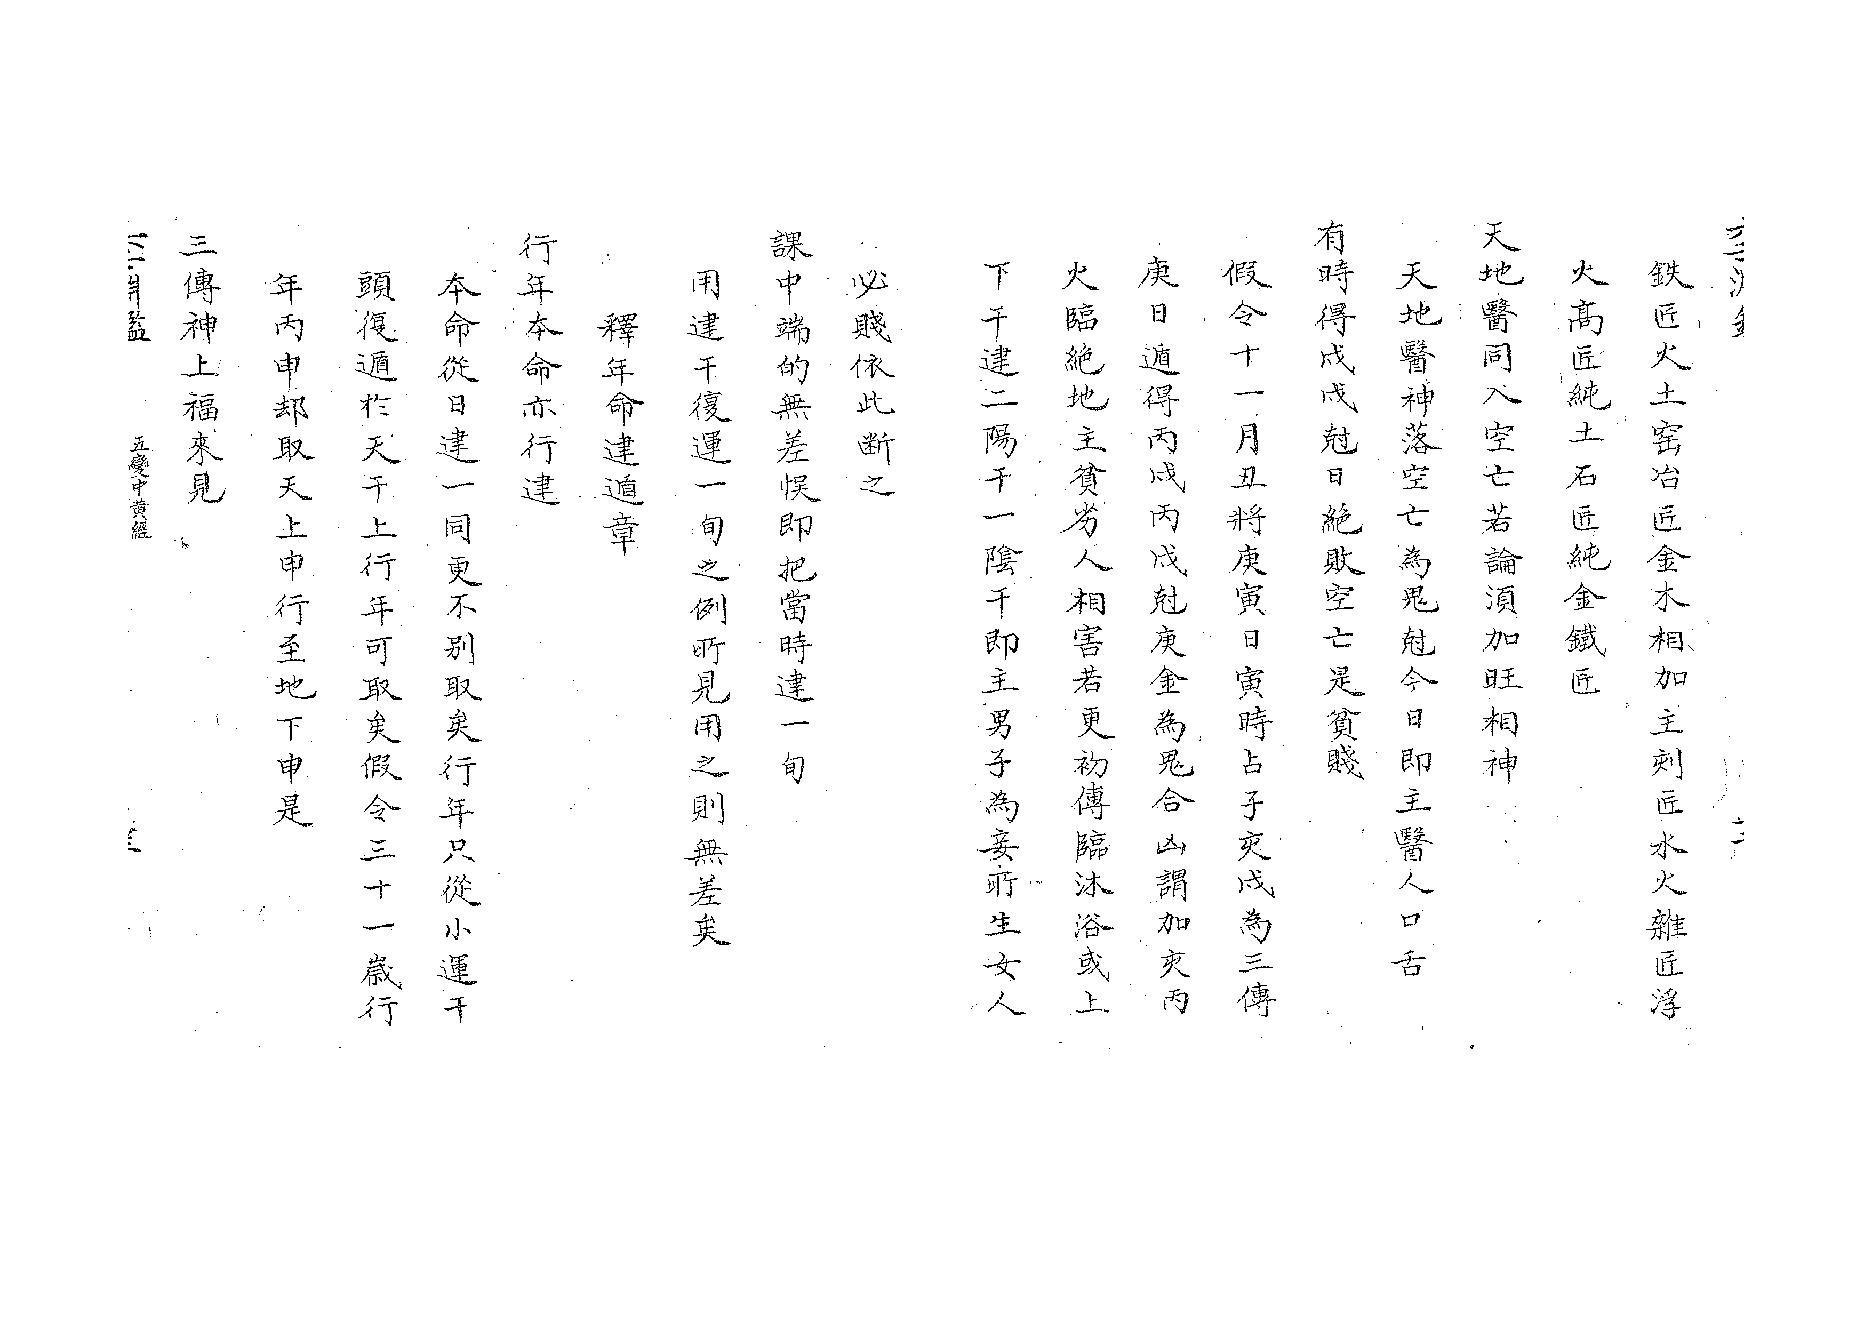 鉄匠火土窑冶匠金木相加主刺匠水火雜匠浮
火高匠純土石匠純金鐵匠
天地醫同入空亡若論湏加旺相神
天地醫神落空亡為鬼尅今日即主醫人口舌
有時得戍戍尅日絕敗空亡是貧賤
假令十一月丑將庚寅日寅時占子亥戍為三傳
庚日遁得丙戍丙戍尅庚金為鬼合凶謂加亥丙
火臨絕地主貧劣人相害若更初傳臨沐浴或上
下干建二陽干一陰干即主男子為妾所生女人
必賤依此断之
課中端的無差悮即把當時建一旬
用建干復運一旬之例所見用之則無差矣
釋年命建遁章
行年本命亦行建
本命從日建一同更不别取矣行年只從小運干
頭復遁於天干上行年可取矣假令三十一歲行
年丙申却取天上申行至地下申是
三傳神上福來見
五變中黄經